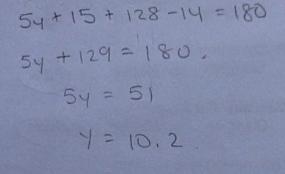 5y + 15 + 128 - 14 = 180
5y + 129 = 180.
5y = 51
y = 10.2